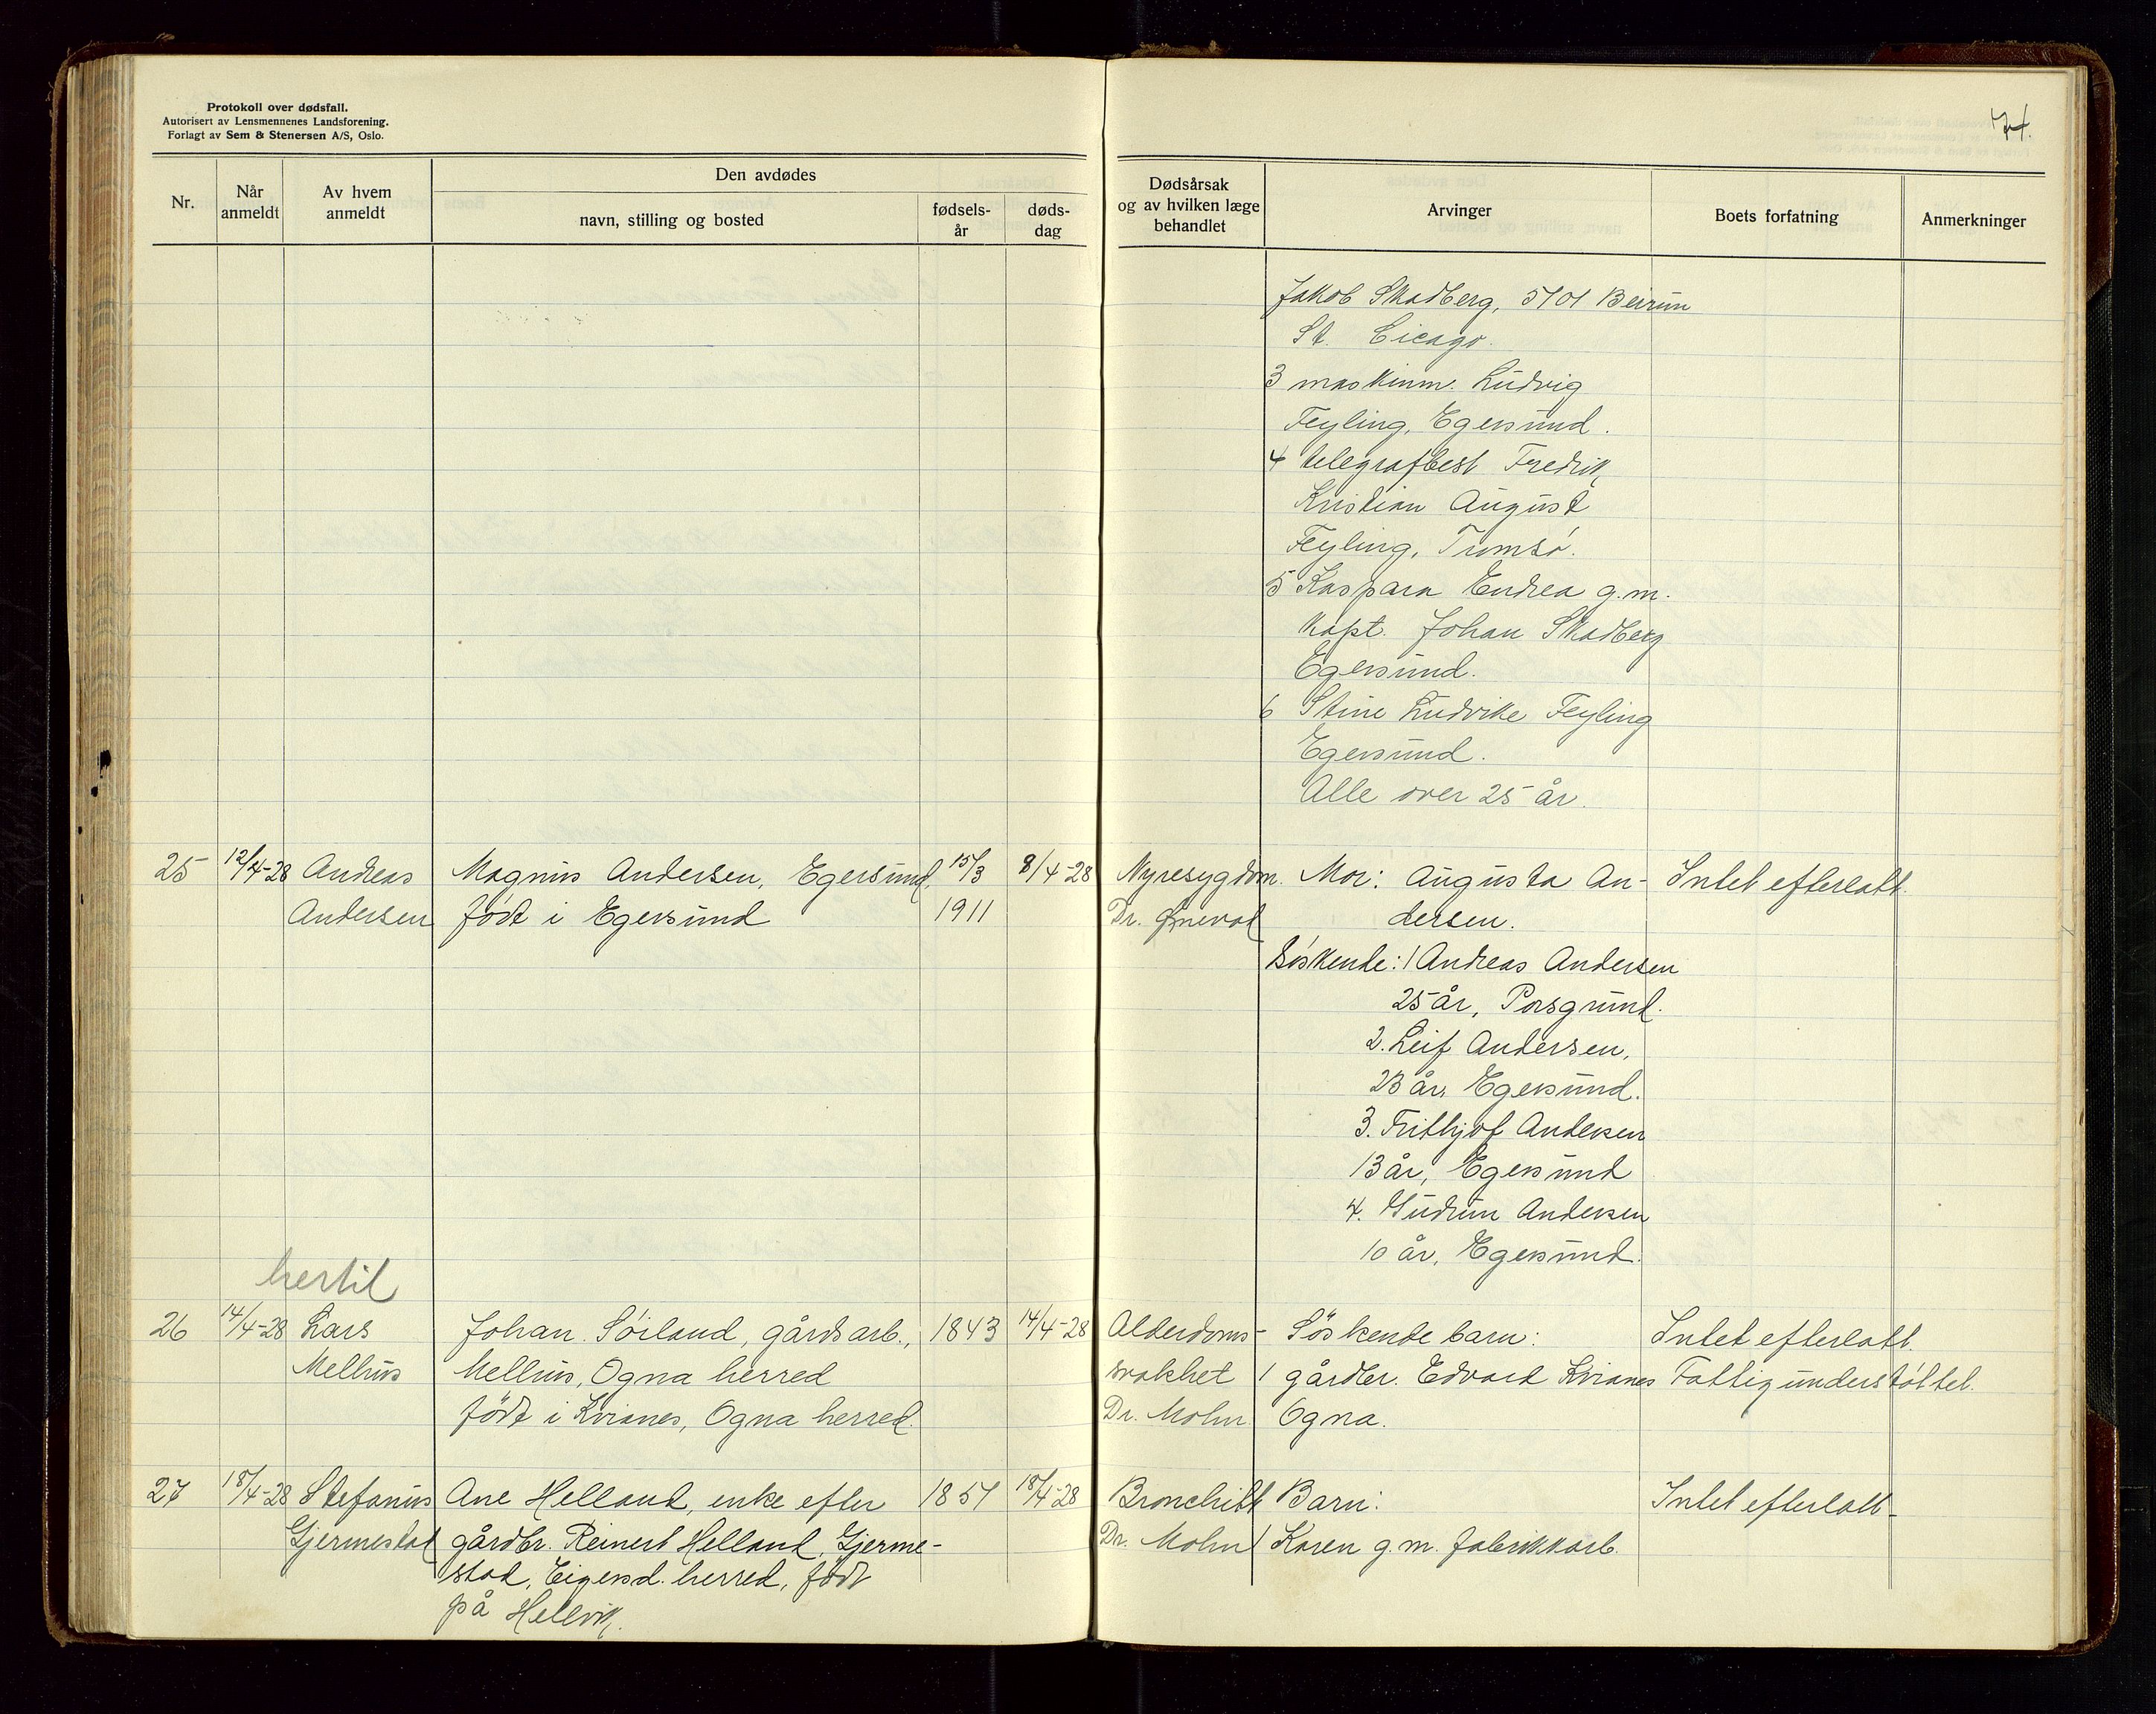 Protokoll over dødsfall.
Autorisert av Lensmennenes Landsforening.
Forlagt av Sem & Stenersen A/S, Oslo.
74.
Nr.
Når anmeldt
Av hvem anmeldt
Den avdødes
navn, stilling og bosted
fødsels-år
døds-dag
Dødsårsak
og av hvilken læge
behandlet
Arvinger
Boets forfatning
Anmerkninger
Jakob Skadberg, 5701 Beirun
St. Cicago.
3 maskinm. Ludvig
Feyling, Egersund.
4 telegrafbest Fredrik
Kristian August
Feyling, Tromsö.
5 Kaspara Endrea g.m.
kapt. Johan Skadberg
Egersund.
6 Stine Ludvike Feyling
Egersund.
Alle over 25 år.
25 12/4-28 Andreas Magnus Andersen, Egersund, 15/3 8/4-28 Nyresygdom. Mor: Augusta An- Intet efterlatt.
Andersen født i Egersund 1911 Dr. dersen.
Söskende: 1 Andreas Andersen
25 år, Porsgrund.
2. Leif Andersen,
23 år, Egersund.
3. Frithjof Andersen
13 år, Egersund
4. Gudrun Andersen
10 år, Egersund.
hertil
26 14/4-28 Lars Johan Sörland, gårdsarb., 1843 14/4-28 Alderdoms- Söskendebarn: Intet efterlatt.
Melhus Melhus, Ogna herred svakhet 1 gårdbr. Edvard Kvianes Fattigunderstöttet.
født i Kvianes, Ogna herred. Dr. Mohn. Ogna.
27 18/4-28 Stefanus Ane Helland, enke efter 1857 18/4-28 Bronchitt Barn: Intet efterlatt-
Gjermestad gårdbr. Reinert Helland, Gjerme- Dr. Mohn 1 Karen g.m. fabrikkarb.
stad, Eigersd. herred, født
på Hellvik.